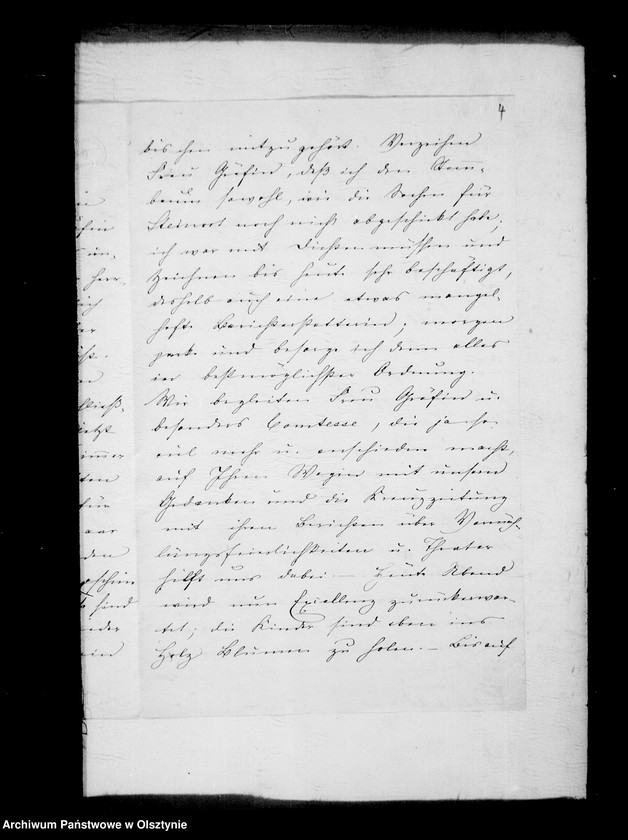 4
bischen mitzugehört. Verzeihen
Frau Gräfin, daß ich den Stamm-
baum sowohl, wie die Sachen für
Steinort noch nicht abgeschickt habe;
ich war mit und
Zeichnen bis heute sehr beschäftigt,
deshalb auch eine etwas mangel-
hafte Berichterstatterin; morgen
packe und besorge ich dann alles
in bestmöglichster Ordnung.
Wir begleiten Frau Gräfin u.
besonders Comtesse, die ja so
viel mehr u. verschieden macht,
auf Ihren Wegen mit unsern
Gedanken und die Kreuzzeitung
mit ihren Berichten über Vermäh-
lungsfeierlichkeiten u. Theater
hilft uns dabei – Heute Abend
wird nun Excellenz zurückerwar-
tet; die Kinder sind eben ins
Holz Blumen zu holen. – Bis auf
Archiwum Państwowe w Olsztynie